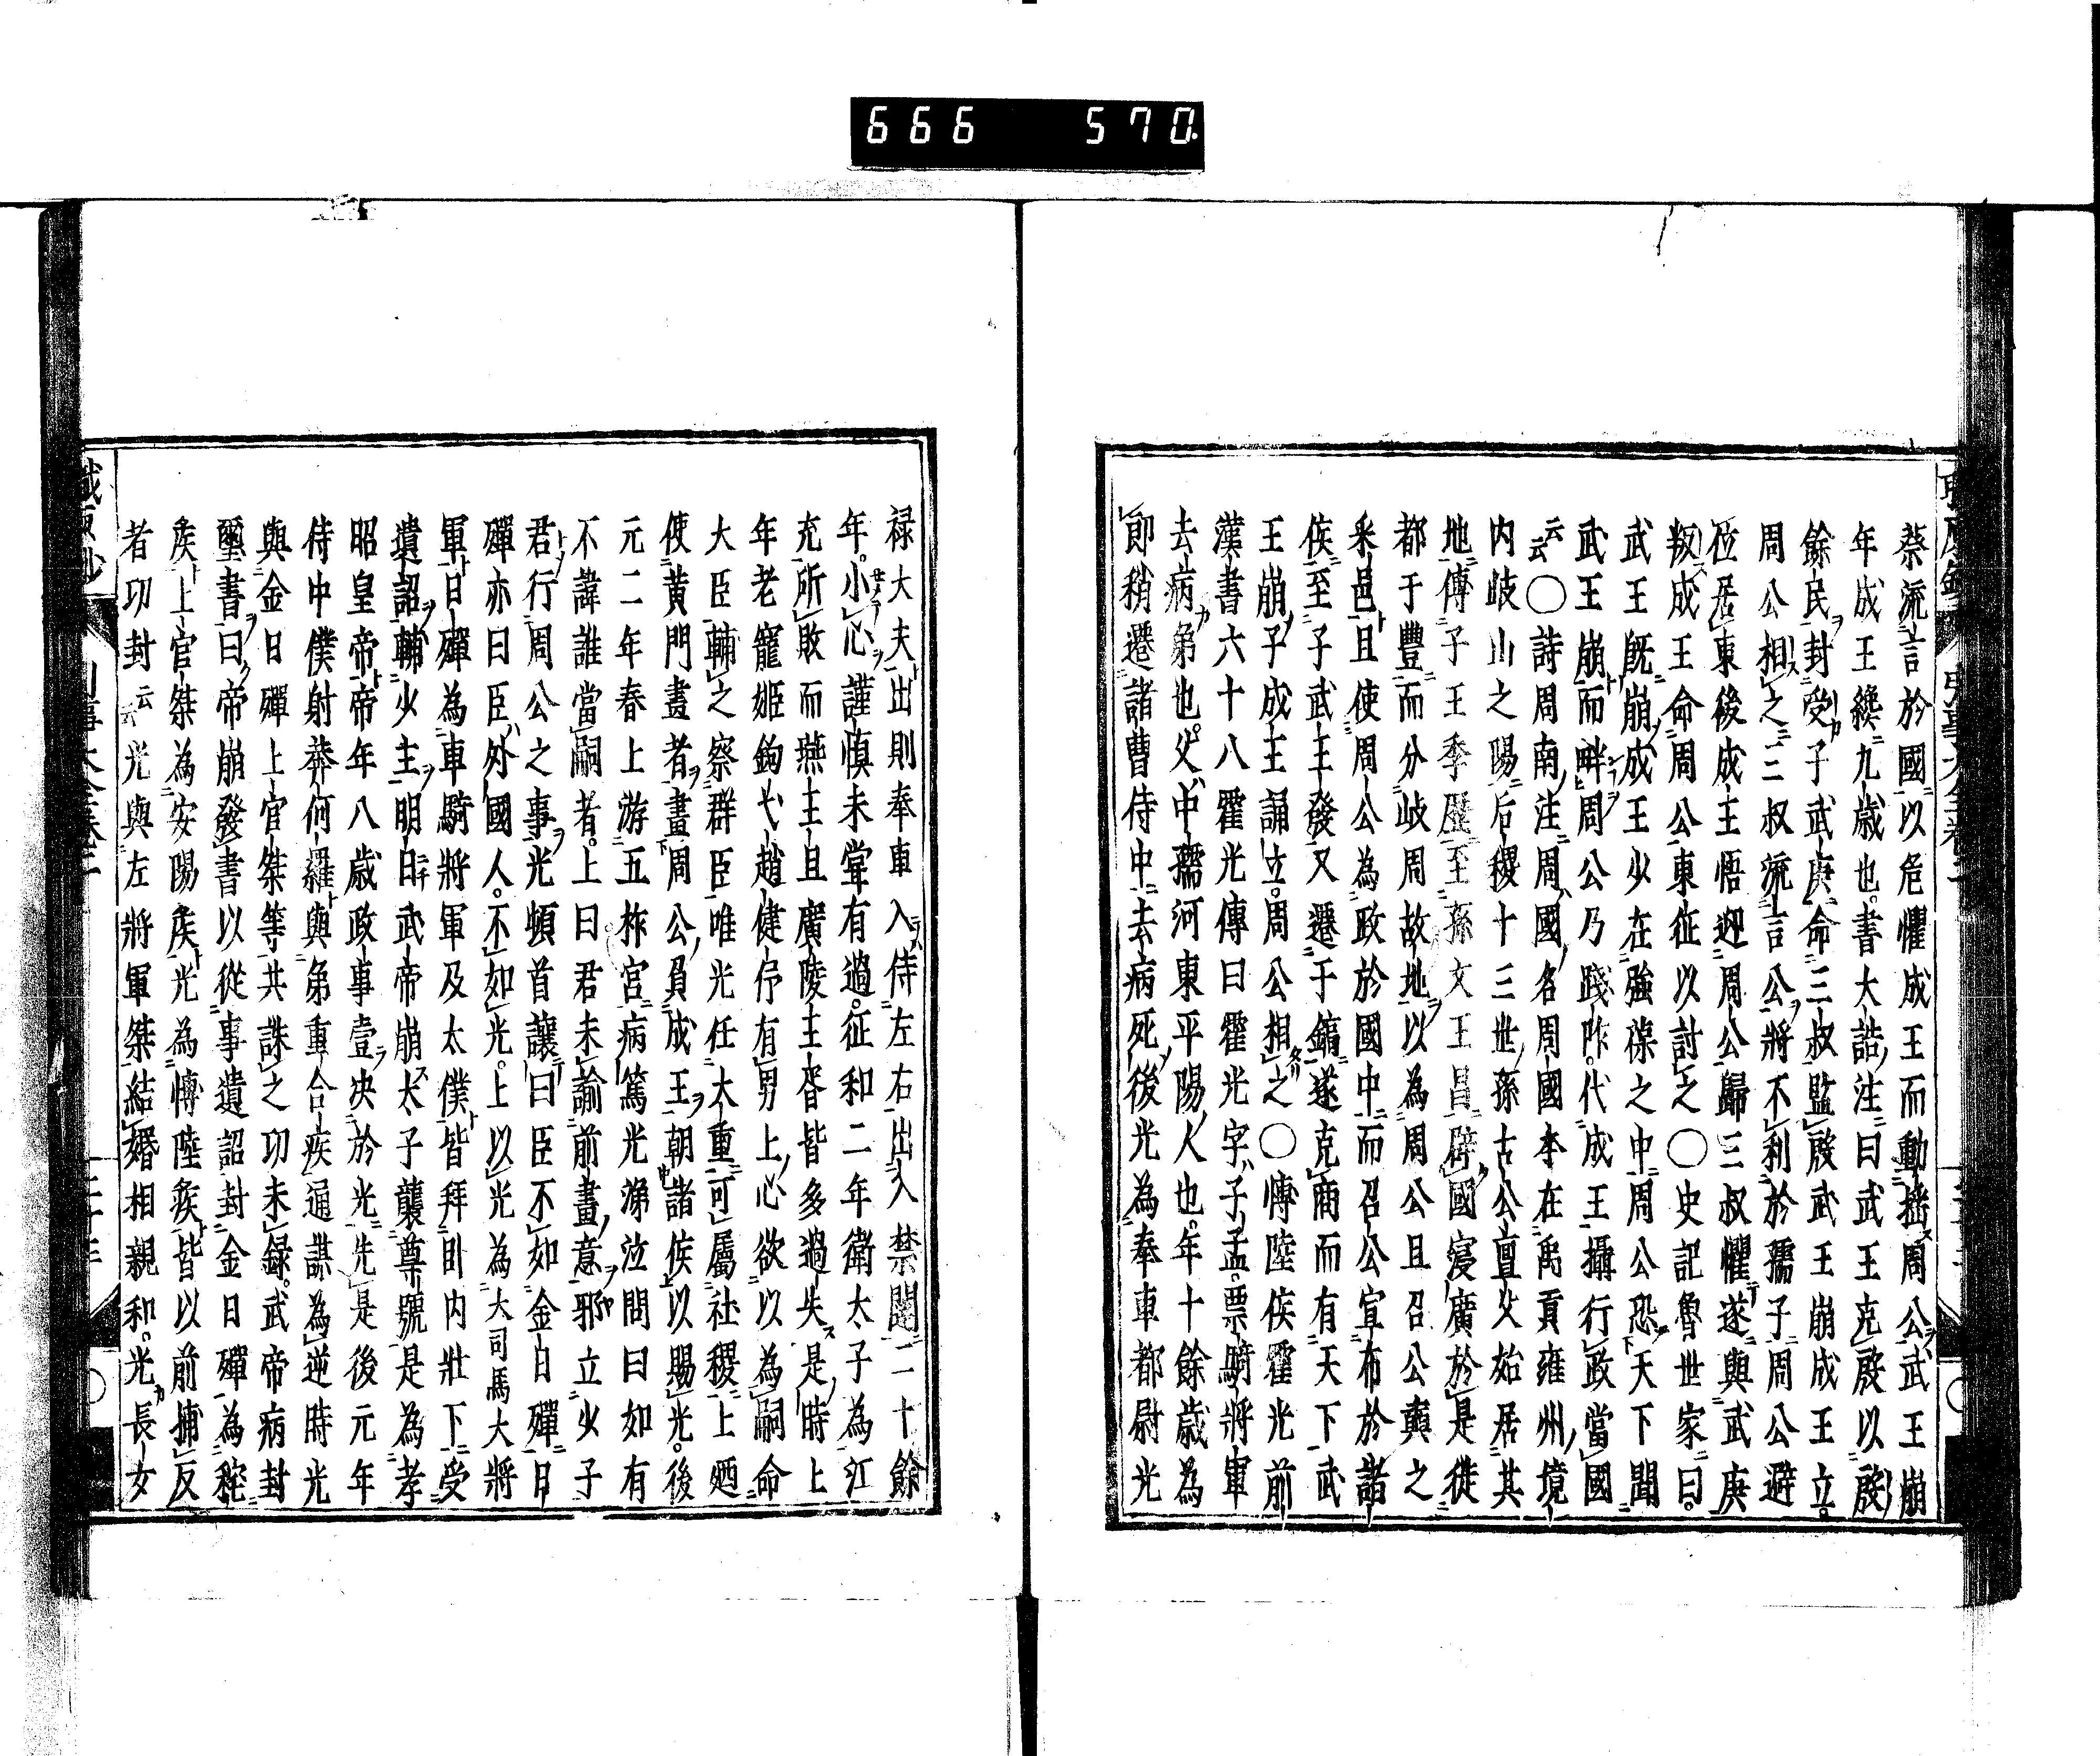 666 570.
蔡流言於國以危懼成王而動揺周公武王崩
年成王纔九歳也書大誥注曰武王克殷以殷
餘民封受子武庚命三叔監殷武王崩成王立
周公相之三叔流言公將不利於孺子周公避
位居東後成王悟迎周公歸三叔懼遂與武庚
叛成王命周公東征以討之○史記魯世家曰
武王既崩成王少在強葆之中周公恐天下聞
武王崩而畔周公乃踐阼代成王攝行政當國
云云○詩周南注周國名周國本在禹貢雍州境
内岐山之陽后稷十三世孫古公亶父始居其
地傳子王季歴至孫文王昌辟國寖廣於是徙
都于豐而分岐周故地以為周公且召公奭之
采邑且使周公為政於國中而召公宣布於諸
侯至子武王發又遷于鎬遂克商而有天下武
王崩子成王誦立周公相之○博陸侯霍光前
漢書六十八霍光傳曰霍光字子孟票騎將軍
去病弟也父中孺河東平陽人也年十餘歳為
郎稍遷諸曹侍中去病死後光為奉車都尉光
禄大夫出則奉車入侍左右出入禁闥二十餘
年小心謹慎未甞有過征和二年衛太子為江
充所敗而燕王且廣陵王胥皆多過失是時上
年老寵姫鉤弋趙倢伃有男上心欲以為嗣命
大臣輔之察群臣唯光任大重可屬社稷上廼
使黄門畫者畫周公負成王朝諸侯以賜光後
元二年春上游五柞宮病篤光涕泣問曰如有
不諱誰當嗣者上曰君未諭前畫意邪立少子
君行周公之事光頓首讓曰臣不如金日磾日
磾亦曰臣外國人不如光上以光為大司馬大將
軍日磾為車騎將軍及太僕皆拜卧内牀下受
遺詔輔少主明日武帝崩太子襲尊號是為孝
昭皇帝帝年八歳政事壹決於光先是後元年
侍中僕射莽何羅與弟重合疾通謀為逆時光
與金日磾上官桀等共誅之功未録武帝病封
璽書曰帝崩發書以從事遺詔封金日磾為秺
疾上官桀為安陽疾光為博陸疾皆以前捕反
者功封云云光與左將軍桀結婚相親和光長女